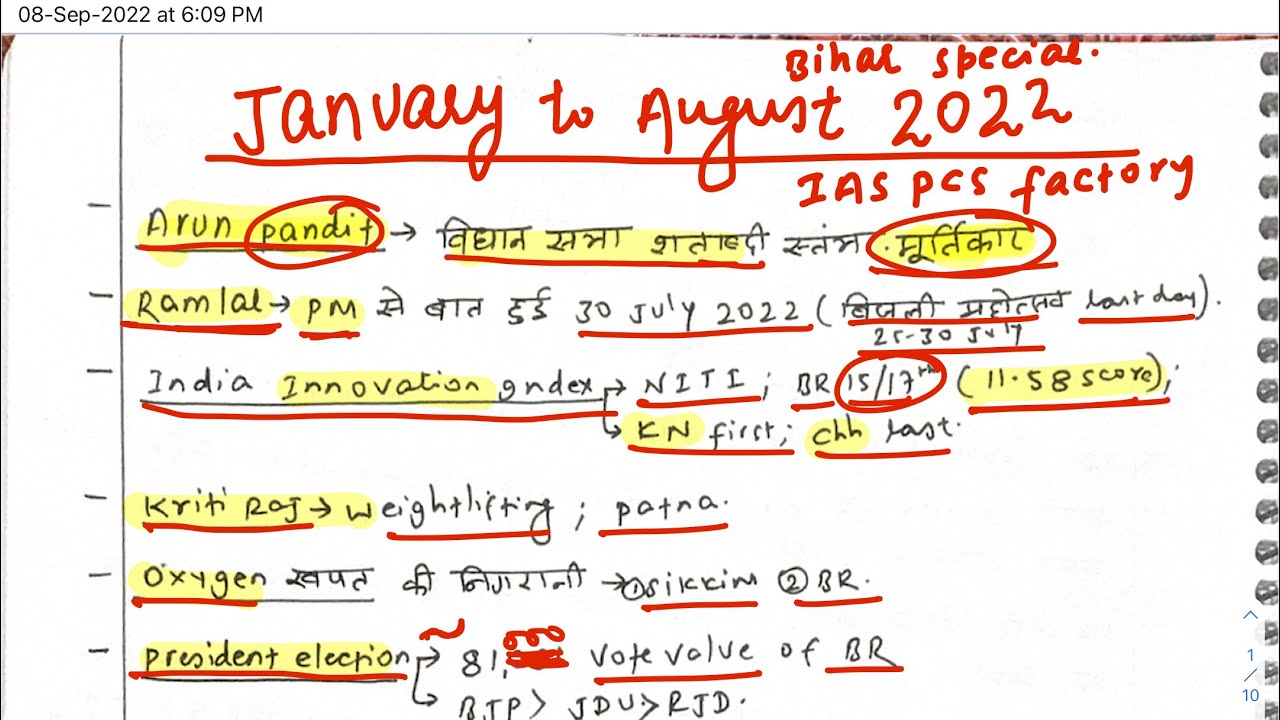 08-Sep-2022 at 6:09 PM
Bihar special.
January to August 2022
IAS PCS factory
- Arun pandit → विधान सभा शताब्दी स्तंभ मूर्तिकार
- Ramlal → PM से बात हुई 30 July 2022 (बिजली महोत्सव last day).
25-30 July
- India Innovation gndex → NITI; BR 15/17th (11.58 score);
→ KN first; chh last.
- Kriti Raj → weightlifting; patna.
- Oxygen खपत की निगरानी → ① sikkim ② BR.
- president election → 81,000 vote value of BR
→ BJP > JDU > RJD.
1
/
10